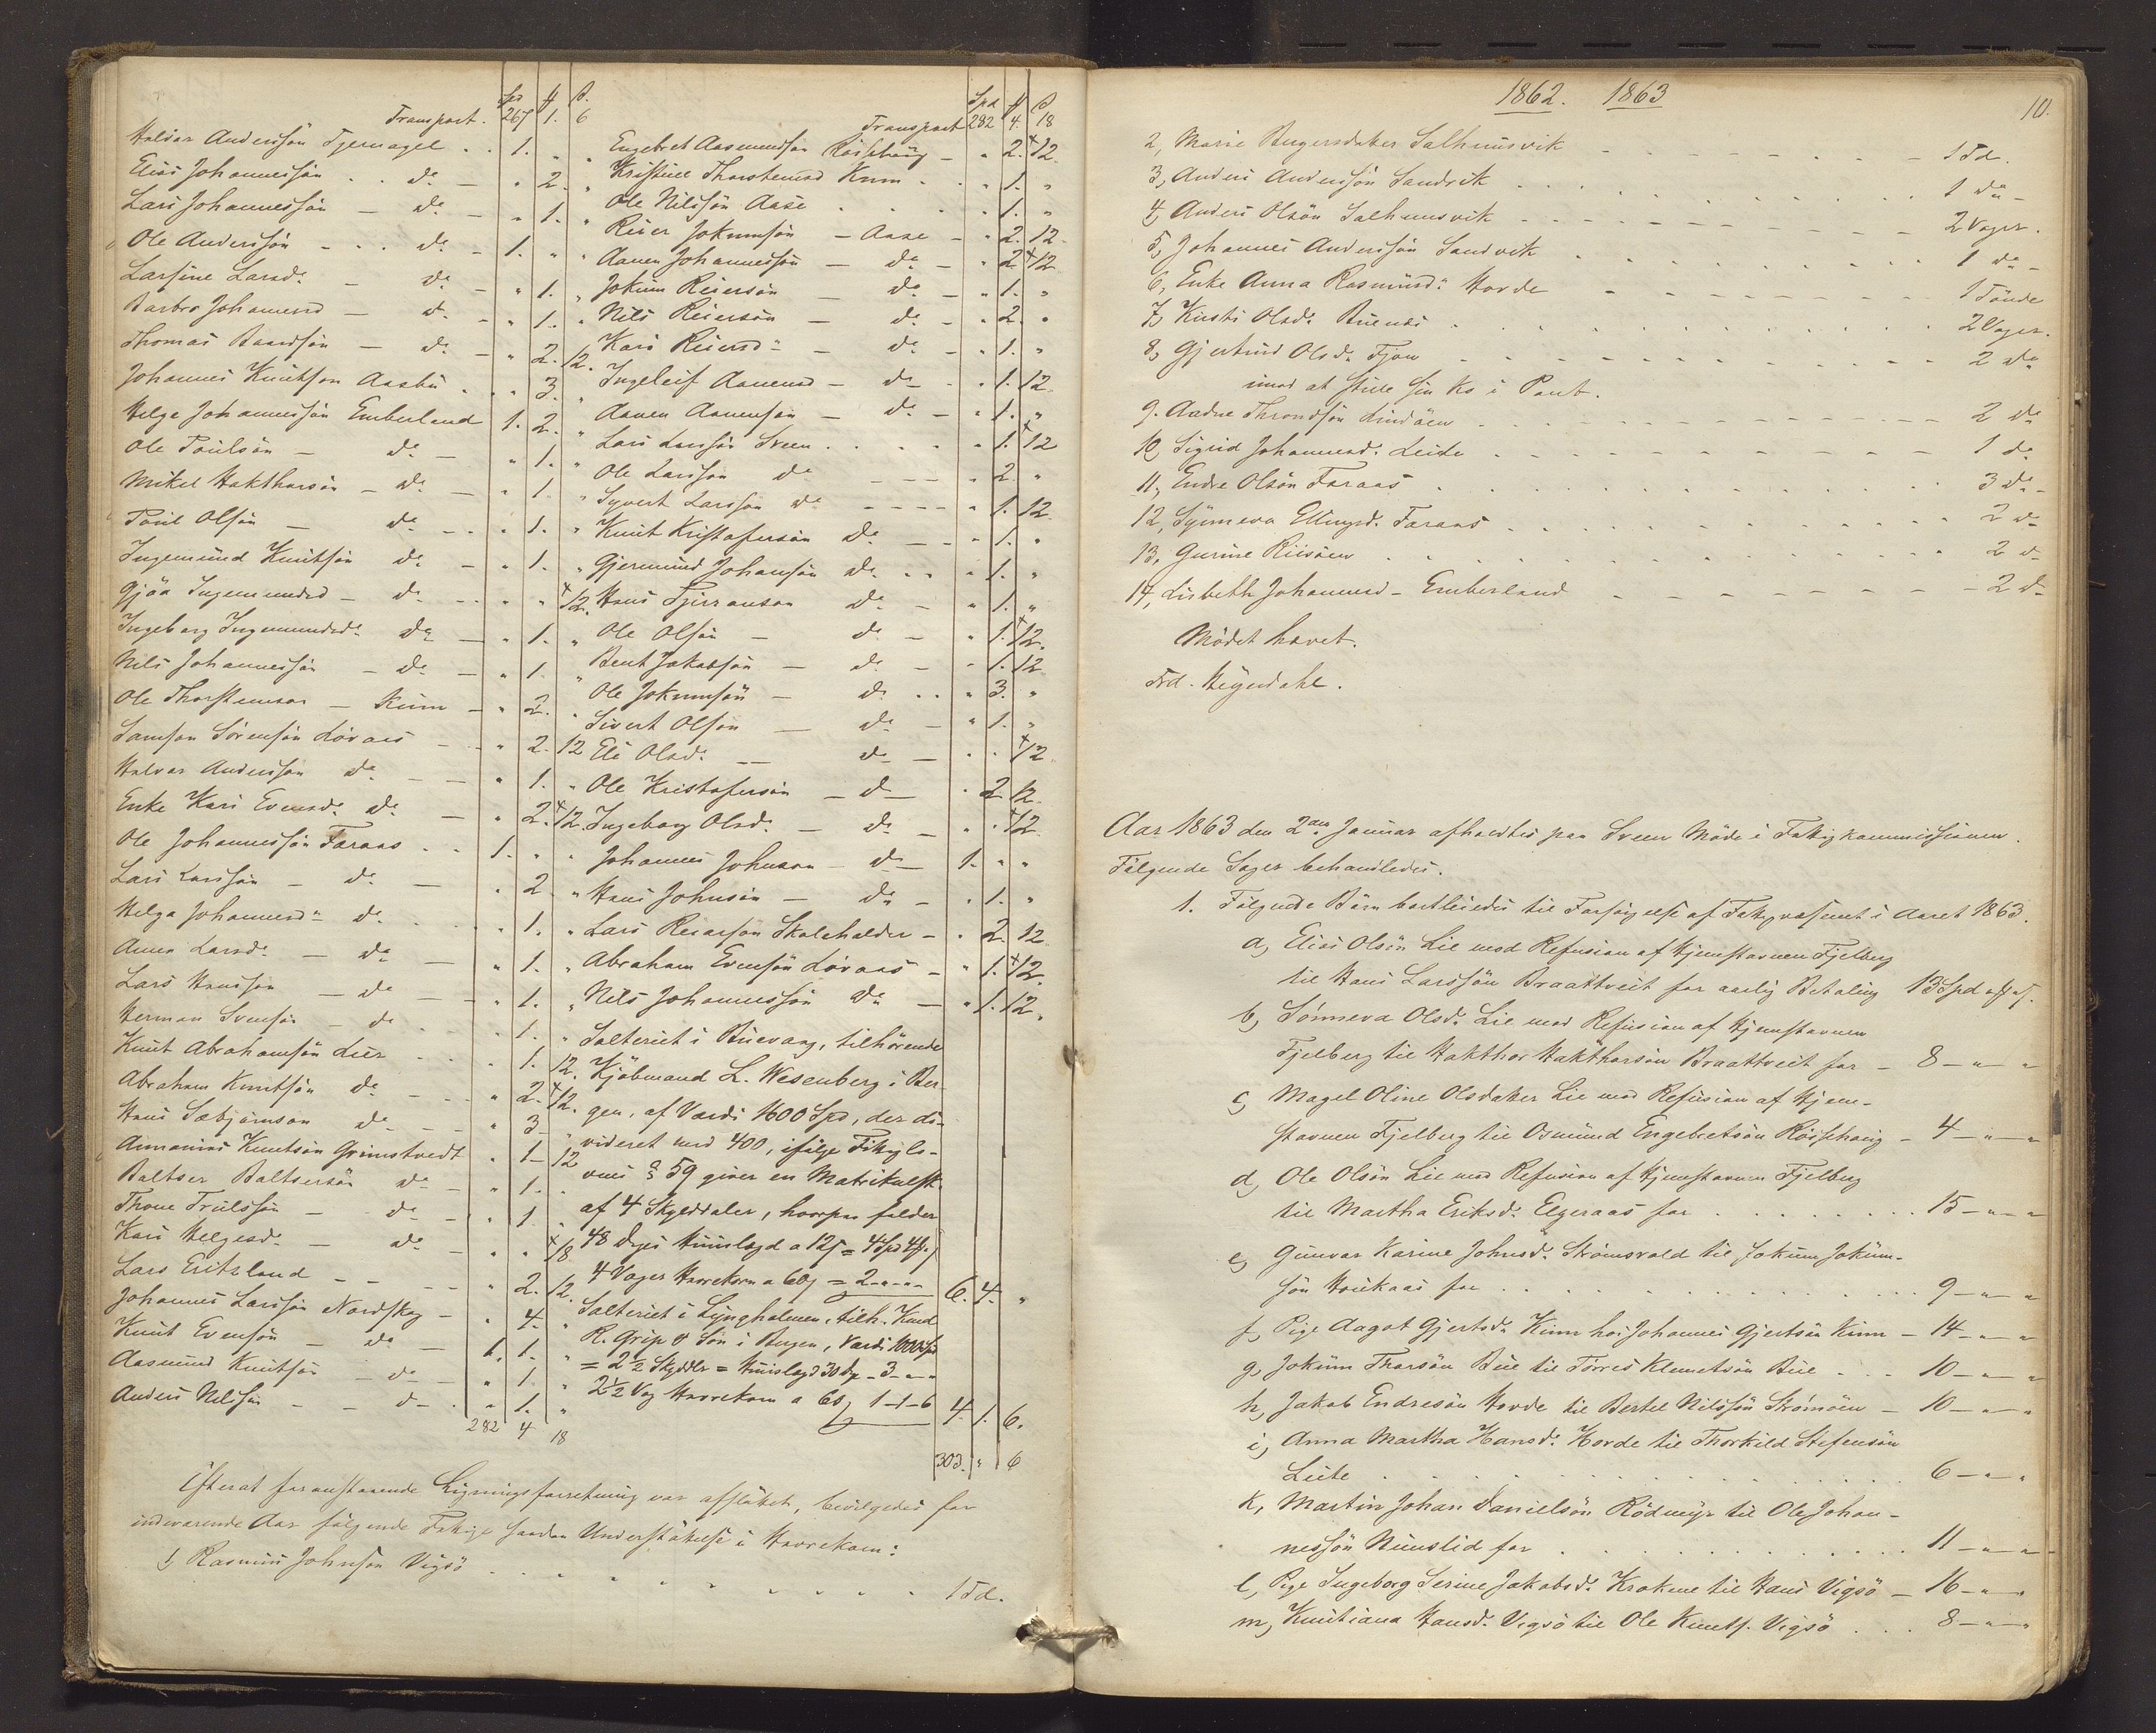 Spd # ß.
Transport. 267 1. 6
Halvor Anderssön Tjernagel . . 1. " "
Elias Johannessön . . do — " 2. "
Lars Johannessön — do — " 1. "
Ole Anderssön - . . do - 1. " "
Larsine Larsd. — do — " 1. "
Barbro Johannesd — do — " 1. "
Thomas Baardsön — do — " 2. 12.
Johannes Knutson Aasbu . . " 3. "
Helge Johannessön Emberland 1. 2. "
Ole Poulsön — do — " 1. "
Mikel Hakthorsön — do — " 1 "
Poul Olsön — do — " 1. "
Ingemund Knutsön do — " 1. "
Gjöa Ingemundsd — do — " " 12.
Ingeborg Ingemundsd. do — " 1. "
Nils Johannessön — do — " 1. "
Ole Thorstenson — Kum — " 2. "
Samson Sörensön Lövaas — " 2. 12
Halvor Andersson do — " 1. "
Enke Kari Evensd. do — " 2. 12.
Ole Johannessön Faraas . . 1. " "
Lars Larssön — do — . 2 "
Helga Johannesd. do . . . 1. "
Anna Larsd. — do — " 1. "
Lars Hanssön — do — " 1. "
Herman Svensön — do . . 1. "
Knut Abrahamsön Lier . . . 1. 12.
Abraham Knutsön do - - " 2. 12.
Hans Sæbjörnson do - - " 3 "
Ammonius Knutsön Grimstvedt . 1 - 12
Baltser Baltsersön do — " 1. "
Thone Trulssön — do — " 1 "
Kari Helgesd. — do — " " 18
Lars Eritsland - - - " 2. 12.
Johannes Larssön Nordskog — " 4. "
Knut Evensön — do — 1. 1. "
Aasmund Knutsön — do — " 1. "
Anders Nilssön — — do — . " 1. "
282 4 18
Spd # ß
Transport 282 4. 18
Engebret Aasmundson Röishaug — " 2. 12.
Kristine Thorstensd Kum . . " 1. "
Ole Nilssön Aase . . . . " 1. "
Reier Jokumsön — Aase — " 2. 12.
Aanen Johannessön — do — " 2 12
Jokum Reiersön — do — " 1. "
Nils Reiersön — do — " 2. "
Kari Reiersd. — do — " 1. "
Ingeleif Aanensd — do — " 1. 12.
Aanen Aanensön — do — " 1. "
Lars Larssön Sveen . . . . " 1. 12
Ole Larssön do - - - " 2. "
Syvert Larssön do - - - - " 1. 12
Knut Kristofersön do — - " 1. "
Gjermund Johansön do . . " 1. "
Hans Tjerranson do — " 1. "
Ole Olsön — do — " 1. 12.
Bent Jakobsön — do — " 1. 12.
Ole Jokumsön — do . . " 3. "
Sivert Olsön — do — " 1. "
Eli Olsd. — do — . " 12.
Ole Kristofersön — do — " 2. 12.
Ingeborg Olsd. — do — " " 12.
Johannes Johnson — do — 1. " "
Hans Johnsön — do — " 1. "
Lars Reiarson Skoleholder — . 2. 12.
Abraham Evensön Lövaas — " 1. 12.
Nils Johannessön do — " 1. 12.
Salteriet i Buevaag, tilhörende
Kjöbmand L. Wesenberg i Ber-
gen, af Værdi 1600 Spd, der di-
videret med 400, ifölge Fattiglo-
vens § 59 giver en Matrikulsk.
af 4 Skylddaler, hvorpaa falder
48 Dages Huuslægd a 12ß = 4 Spd 4#
4 Vager Havrekorn a 60ß = 2 - " - " 6. 4. "
Salteriet i Lyngholmen, tilh. Knud
R. Grip & Sön i Bergen, Værdi 1000 Spd
= 2½ Skylddlr = Huuslægd 30 Dge - 3 - " - "
2½ Vog Havrekorn a 60ß 1-1-6 4. 1. 6.
303. " 6
Efterat foranstaaende Ligningsforretning var afsluttet, bevilgedes for
indeværende Aar fölgende Fattige saadan Understöttelse i Havrekorn:
1) Rasmus Johnsön Vigsö . . . . . . . . . . 1 Td.
1862. 1863
10.
2, Marie Ingersdatter Salhuusvik - - - - - - - 1 Td.
3, Anders Anderssön Sandvik . . . . . . . . 1 do -
4, Anders Olsön Salhuusvik - - - - - - - 2 Voger.
5, Johannes Anderssön Sandvik . . . . . . . 1 do -
6, Enke Anna Rasmusd. Hovde - - - - - - 1 Tönde
7, Kirsti Olsd. Buenæs . . . . . . . . . 2 Voger.
8, Gjertrud Olsd. Fjon - - - - - - - - 2 do
imod at stille sin Ko i Pant.
9. Aadne Throndsön Lindöen - - - - - - - 2 do
10, Sigrid Johannesd. Leite - - - - - - - 1 do
11, Endre Olsön Faraas . . . . . . . . . 3 do -
12, Synneva Ellingsd. Faraas . . . . . . . . 2 do
13, Gurine Riisöen . . . . . . . . . . 2 do
14, Lisbeth Johannesd - Emberland - - - - - - 2 do
Mödet hævet.
Frd. Heyerdahl.
Aar 1863 den 2den Januar afholdtes paa Sveen Möde i Fattigkommissionen.
Fölgende Sager behandledes.
1. Fölgende Börn bortleiedes til Forsörgelse af Fattigvæsenet i Aaret 1863.
a, Elias Olsön Lie mod Refusion af Hjemstavnen Fjelberg
til Hans Larssön Braattveit for aarlig Betaling 13 Spd " # " ß.
b, Sönneva Olsd. Lie mod Refusion af Hjemstavnen
Fjelberg til Hakthor Hakthorsön Braattveit for — 8 — " — "
c, Magel Oline Olsdatter Lie mod Refusion af Hjem-
stavnen Fjelberg til Osmund Engebretsön Röishaug — 4 — " — "
d, Ole Olsön Lie mod Refusion af Hjemstavnen Fjelberg
til Martha Eriksd. Elgeraas for . . . . . . . 15 — " — "
e, Gunvor Karine Johnsd. Strömsvold til Jokum Jokum-
sön Houkaas for . . . . . . . . . . . 9 — " — "
f, Pige Aagot Gjertsd. Kum hos Johannes Gjertsön Kum — 14 — " — "
g, Jokum Thorsön Bue til Törres Klemetsön Bue . . . 10 — " — "
h, Jakob Endresön Hovde til Bertel Nilssön Strömöen — 10 — " — "
i, Anna Martha Hansd. Hovde til Thorkild Stefensön
Leite . . . . . . . . . . . . . . 6 — " — "
k, Martin Johan Danielsön Rödmyr til Ole Johan-
nessön Nuuslid for . . . . . . . . . . 11 — " — "
l, Pige Ingeborg Serine Jakobsd. Krokene til Hans Vigsö — 16 — " — "
m, Knutiana Hansd. Vigsö til Ole Knuts. Vigsö . . . 8 — " — "